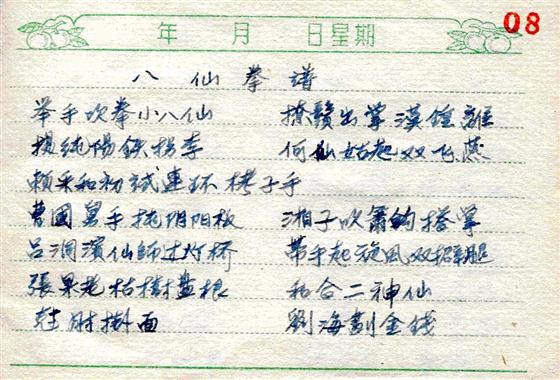 08
年 月 日星期
八仙拳譜
举手吹拳小八仙 撩鬚出掌漢鍾離
純陽鉄拐李 何仙姑起双飞燕
采和初試連环榜子手
曹國舅手托阴阳板 湘子吹箫鈎搭掌
吕洞濱仙師过灯桥 带手起旋风双招腿
張果老枯樹盘根 和合二神仙
肘掛面 劉海割金钱